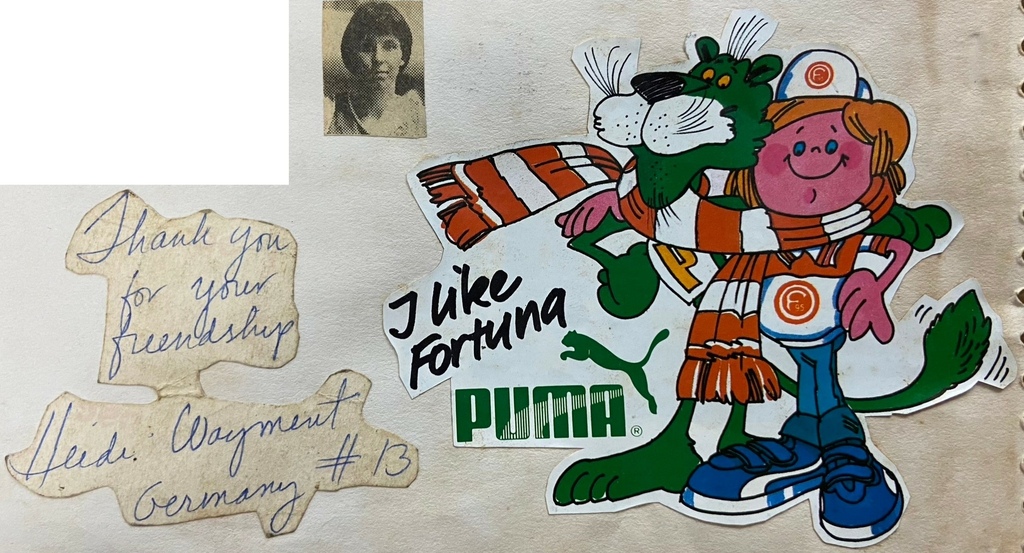 Thank you
for your
friendship
Heidi Wayment
# 13
Germany
I like
Fortuna
PUMA®
P
F
F
95